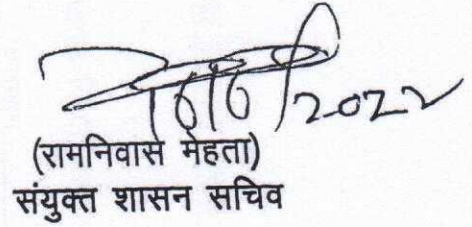 2022
(रामनिवास मेहता)
संयुक्त शासन सचिव